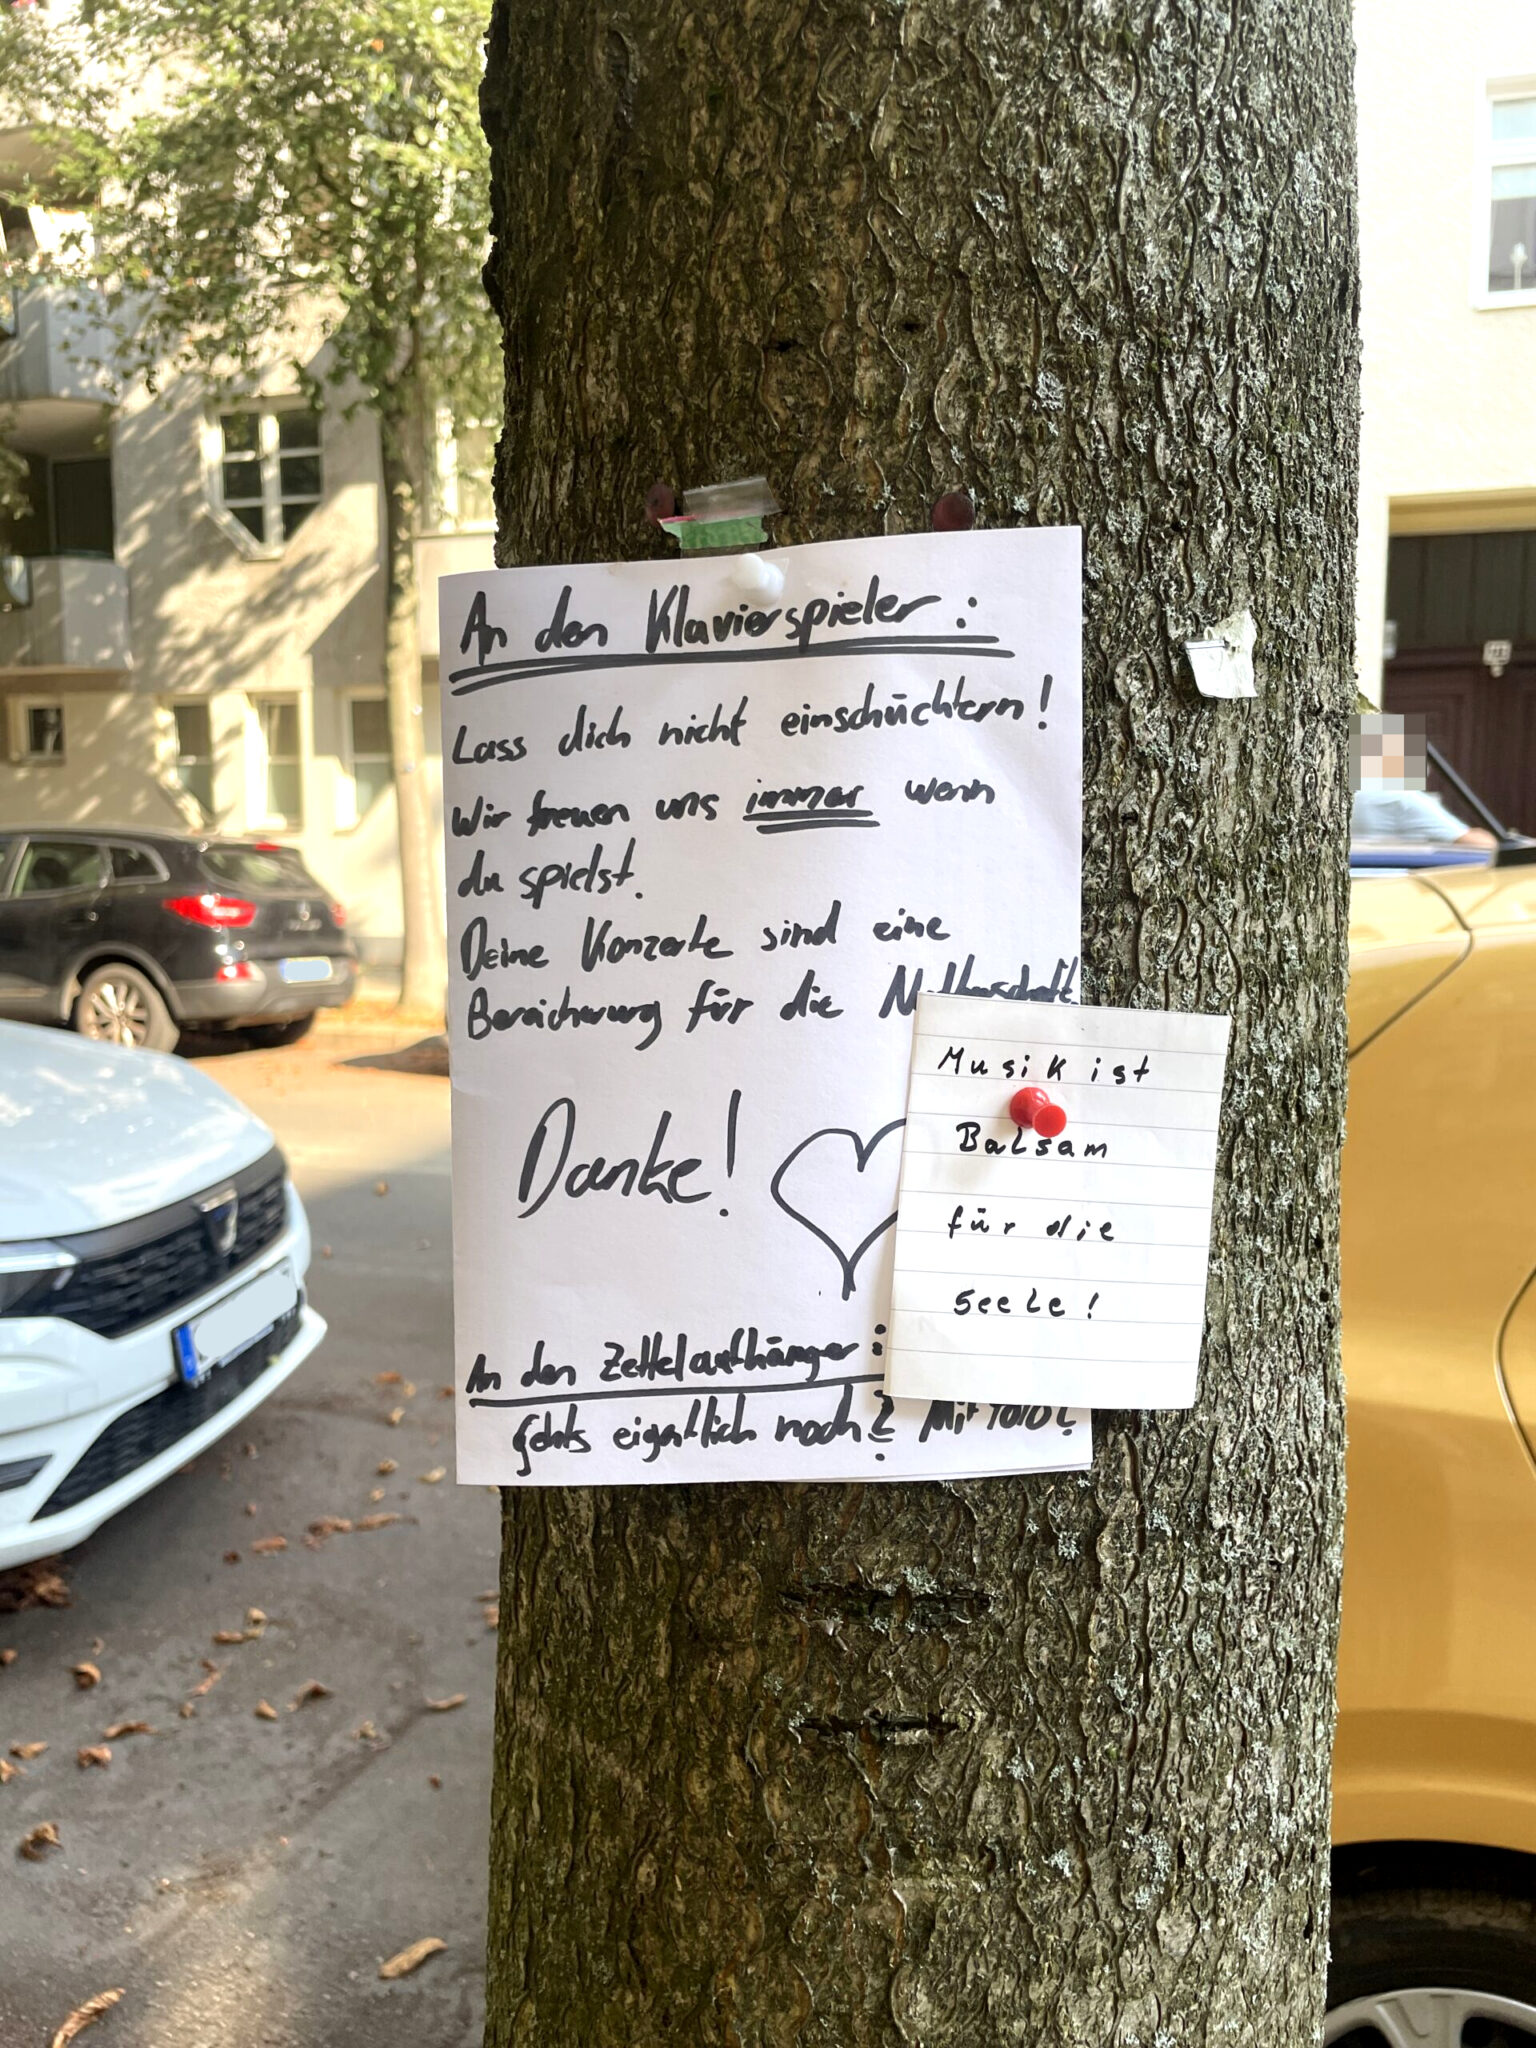 An den Klavierspieler:
Lass dich nicht einschüchtern!
Wir freuen uns immer wenn
du spielst.
Deine Konzerte sind eine
Bereicherung für die
Danke!
An den Zettelaufhänger:
Gehts eigentlich noch? Mit
Musik ist
Balsam
für die
Seele!